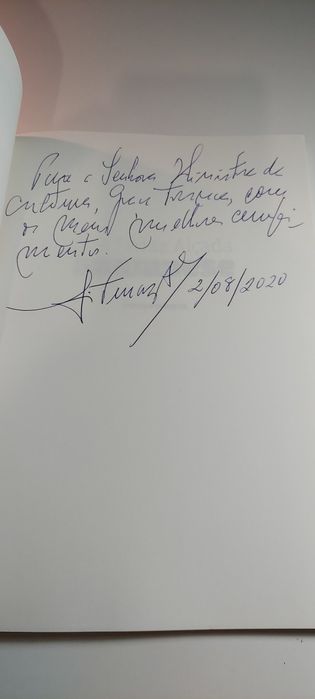 Para a Senhora Ministra da
Cultura, com
os meus melhores cumpri-
mentos.
2/08/2020